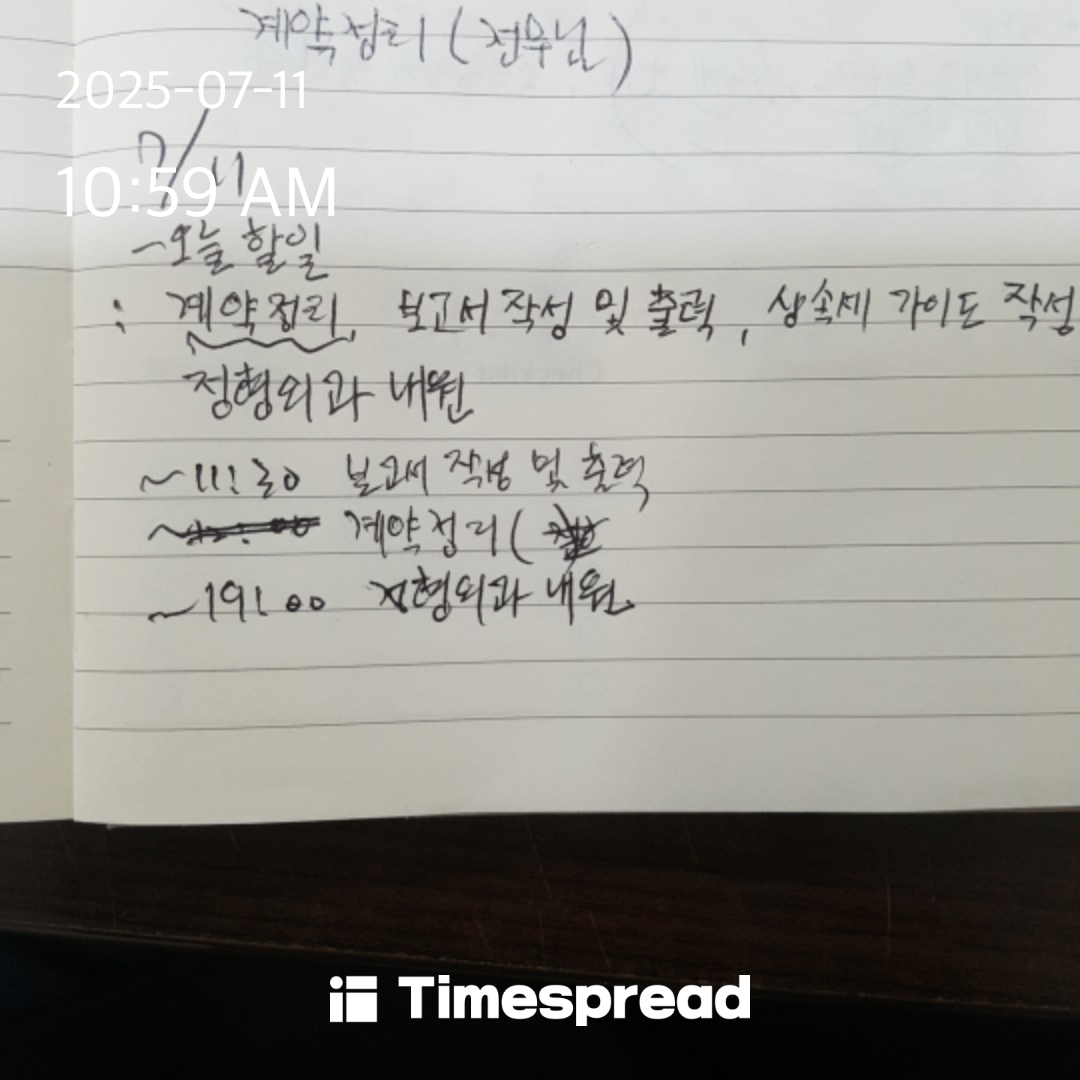 계약정리 (전무님)
2025-07-11
7/11
10:59 AM
-오늘 할일
: 계약정리, 보고서 작성 및 출력, 상속세 가이드 작성
정형외과 내원
~11:30 보고서 작성 및 출력
~ 계약정리 (
~19:00 정형외과 내원
Timespread